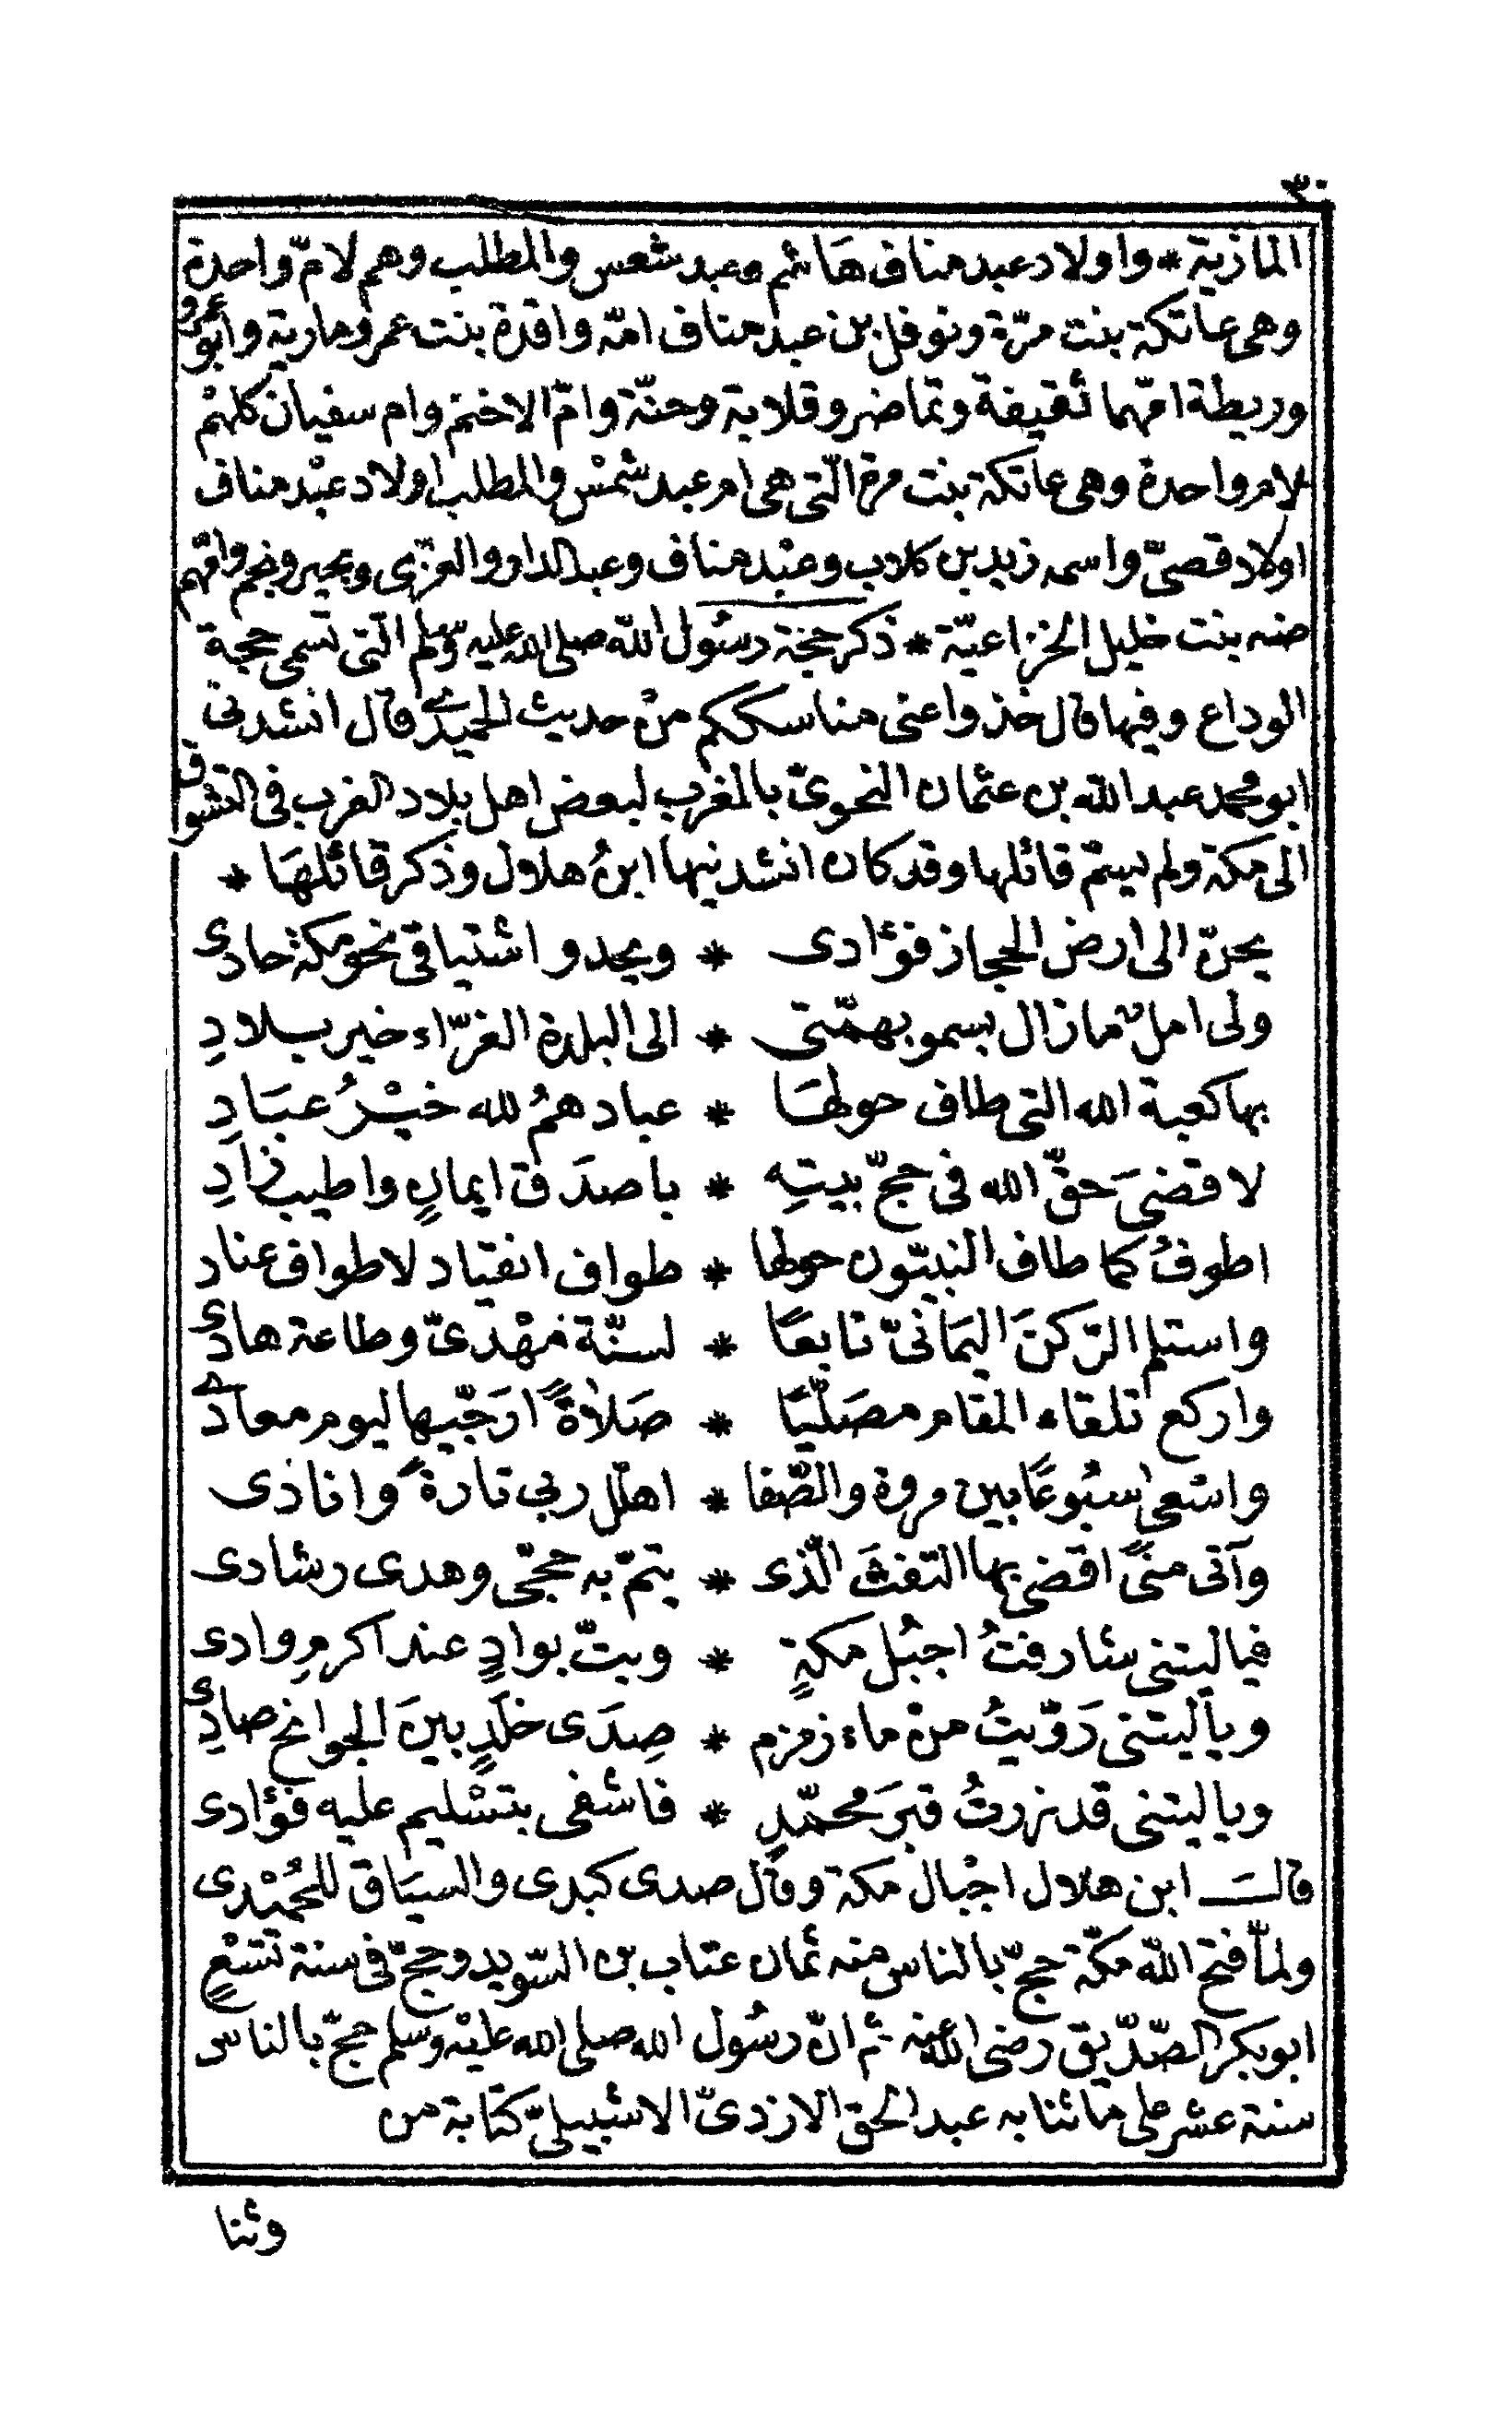 ٣٠
المازنية * واولاد عبد مناف هَاشم وعبد شمس والمطلب وهم لامّ واحدة
وهى عاتكة بنت مرّة ونوفل بن عبد مناف امّه واقدة بنت عمرو مارية وابو عمرو
وريطة امّهما ثقيفة وتماضر وقلابة وحنّة وامّ الاخثم وام سفيان كلهمْ
لام واحدة وهى عاتكة بنت مرة الّتى هى ام عبد شمْس والمطلب اولاد عبْد مناف
اولاد قصىّ واسمه زيد بن كلاب وعبْد مناف وعبد الدار والعزّى وبحير وامّهم
بنت خليل الخزاعيّة * ذكر حجّة رسُول اللّه صلى الله عليه وسلم التى تسمى حجة
الوداع وفيها قال خذوا عنى مناسككم منْ حديث الحميدى قال انشدنى
ابو محمد عبد اللّه بن عثمان النحوىّ بالمغرب لبعض اهل بلاد الغرب فى التشوق
الى مكة ولم يسمّ قائلها وقد كان انشدنيها ابنُ هلال وذكر قائلهَا *
يحنّ الى ارض الحجاز فؤادى * ويحدو اشتياقى نحو مكة حادى
ولى امل ما زال يسمو بهمّتى * الى البلدة الغرّاء خير بلادِ
بها كعبة الله التى طاف حولهَا * عباد همُ لله خيْرُ عبَادِ
لا قضىَ حقّ الله فى حجّ بيتِه * باصدَق ايمانٍ واطيب زادِ
اطوفُ كما طاف النبيّون حولها * طواف انقياد لا طواف عناد
واستلم الرّكنَ اليمَانىّ تابعًا * لسنّة مهْدىّ وطاعة هادى
واركع تلقاء المقام مصَلّيًا * صَلاةً ارَجّيها ليوم معادى
واسْعى اسبُوعًا بين مروة والصّفا * اهلّل ربى تارةً وانادى
وآتى منًى اقضى بها التفثَ الّذى * يتمّ به حجّى وهدى رشادى
فياليتنى شارفتُ اجبُل مكةٍ * وبيتّ بوادٍ عند اكرمِ وادى
وياليتنى رَوّيتُ منْ ماء زمزم * صِدَى خلَدٍ بينَ الجوانح صادِى
وياليتنى قد زرتُ قبرَ محمّدٍ * فاشفى بتسْليم عليه فؤادى
قالــ ابن هلال اجْبال مكة وقال صدى كبدى والسيَاق للحُميْدى
ولمّا فتح اللّه مكّة حجّ بالناس سنه ثمان عتاب بن السّويد وحجّ فى سنة تسْعٍ
ابو بكر الصّدّيق رضى الله عنه ثم انّ رسُول الله صلى الله عليْه وسلم حجّ بالناس
سنة عشر على ما ثنا به عبد الحق الازدىّ الاشبيلىّ كتابة من
وثنا